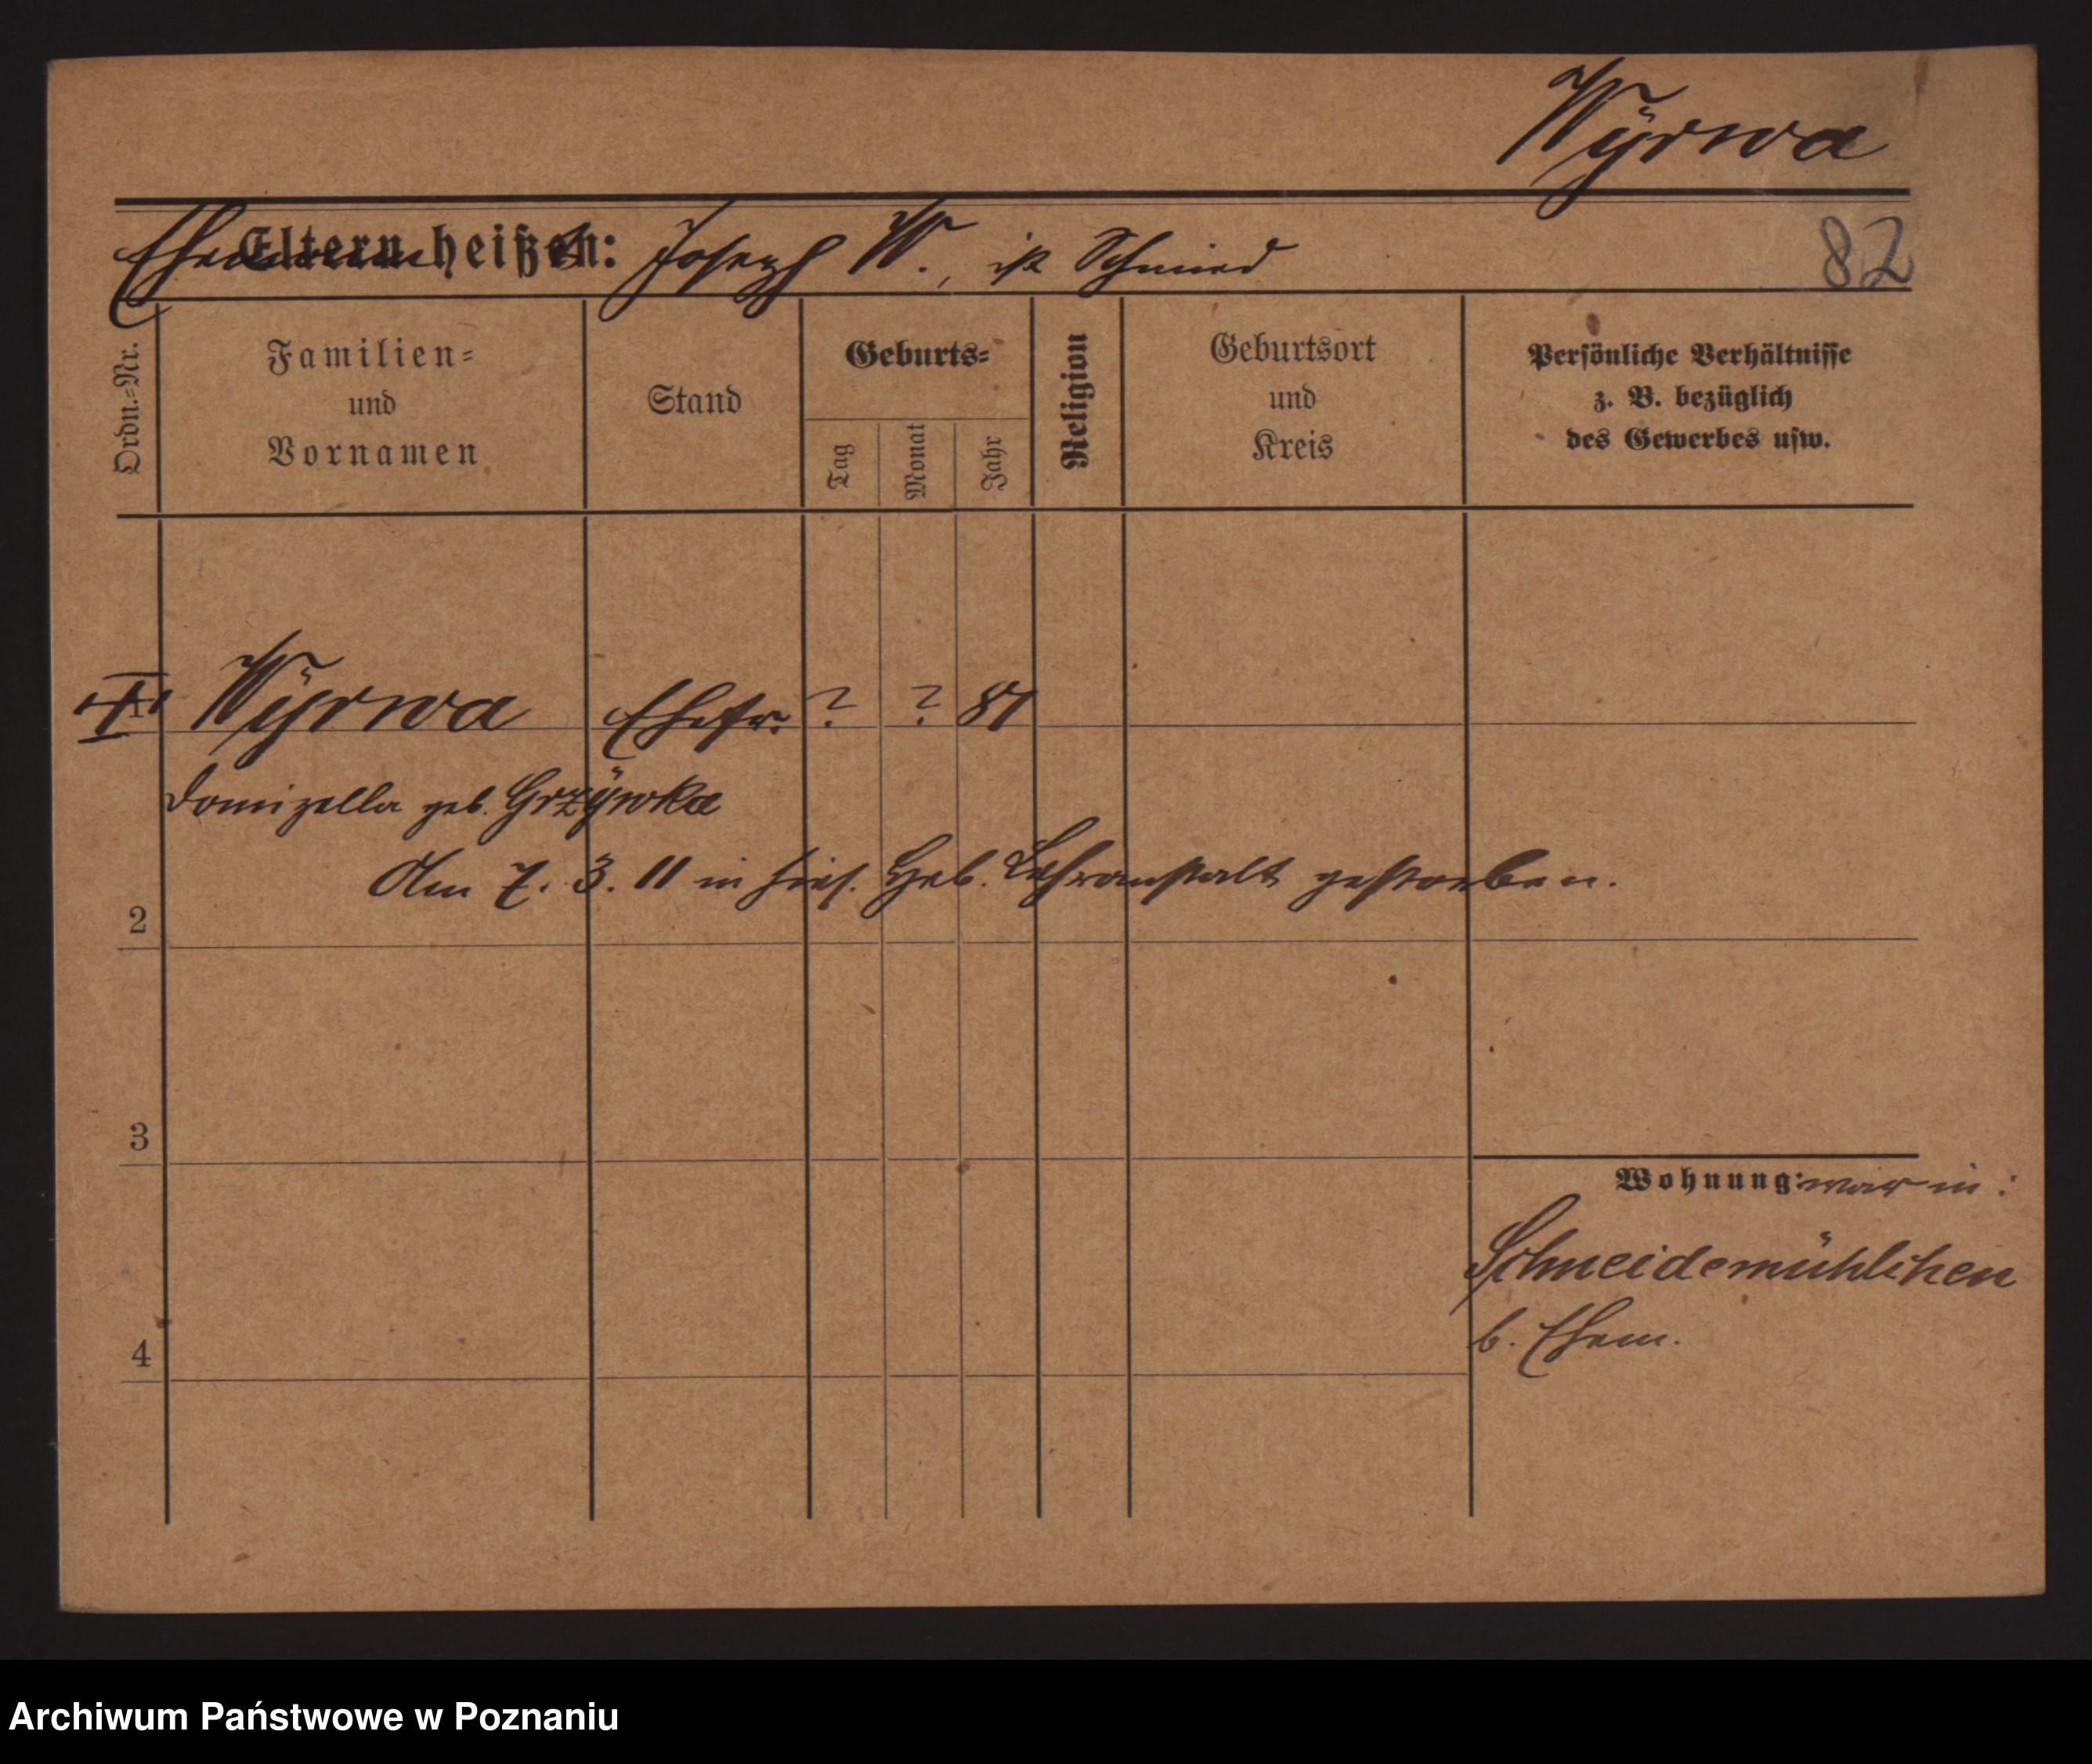 Wÿrwa
Ehemann heißt: Joseph W., ist Schmied
82
Ordn.=Nr.
Familien=
und
Vornamen
Stand
Geburts=
Tag
Monat
Jahr
Religion
Geburtsort
und
Kreis
Persönliche Verhältnisse
z. B. bezüglich
des Gewerbes usw.
1 Wÿrwa Ehefr. ? ? 81
Domizella geb. Grzÿwka
Am 7. 3. 11 in hies. Heb. Lehranstalt gestorben.
2
3
Wohnung: war in:
Schneidemühlchen
b. Ehem.
4
Archiwum Państwowe w Poznaniu